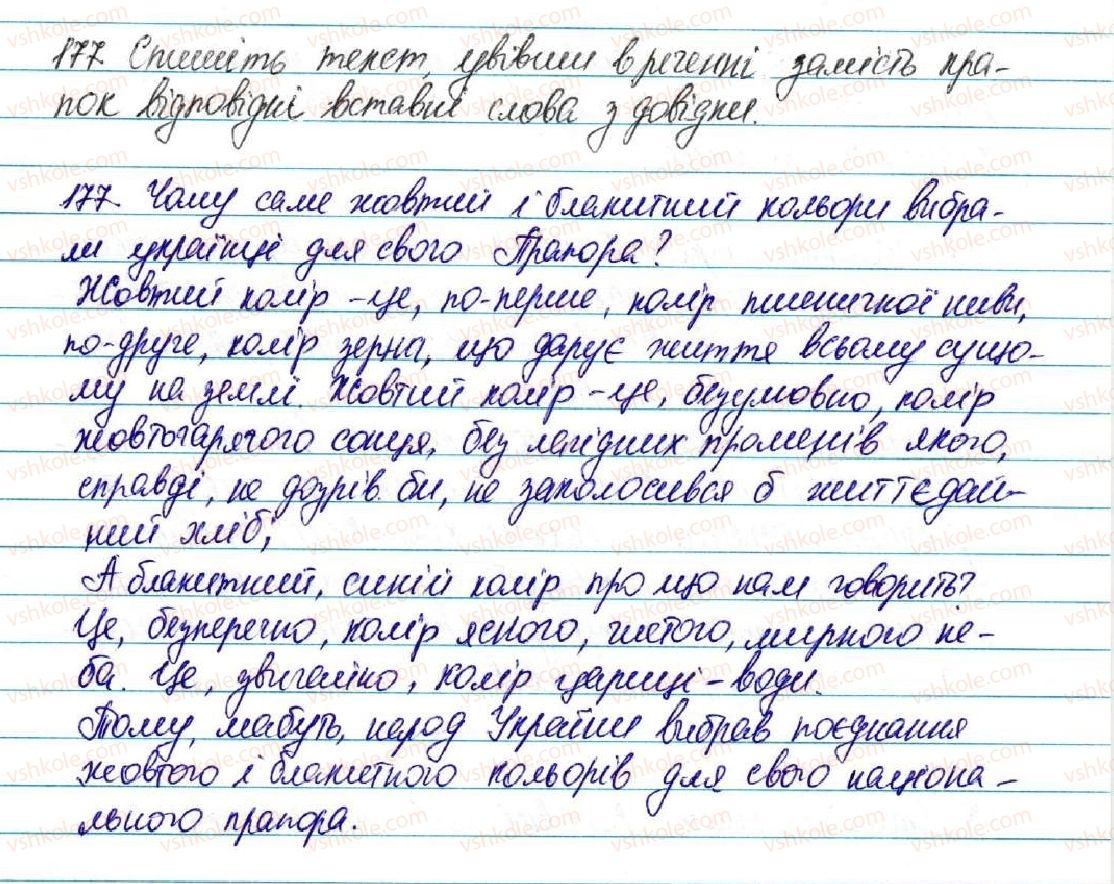 177. Спишіть текст, увівши в реченні замість кра-
пок відповідні вставні слова з довідки.
177. Чому саме жовтий і блакитний кольори вибра-
ли українці для свого Прапора?
Жовтий колір – це, по-перше, колір пшеничної ниви,
по-друге, колір зерна, що дарує життя всьому сущо-
му на землі. Жовтий колір – це, безумовно, колір
жовтогарячого сонця, без лагідних променів якого,
справді, не дозрів би, не заколосився б життєдай-
ний хліб;
А блакитний, синій колір про що нам говорить?
Це, безперечно, колір ясного, чистого, мирного не-
ба. Це, звичайно, колір цариці – води.
Тому, мабуть, народ України вибрав поєднання
жовтого і блакитного кольорів для свого націона-
льного прапора.